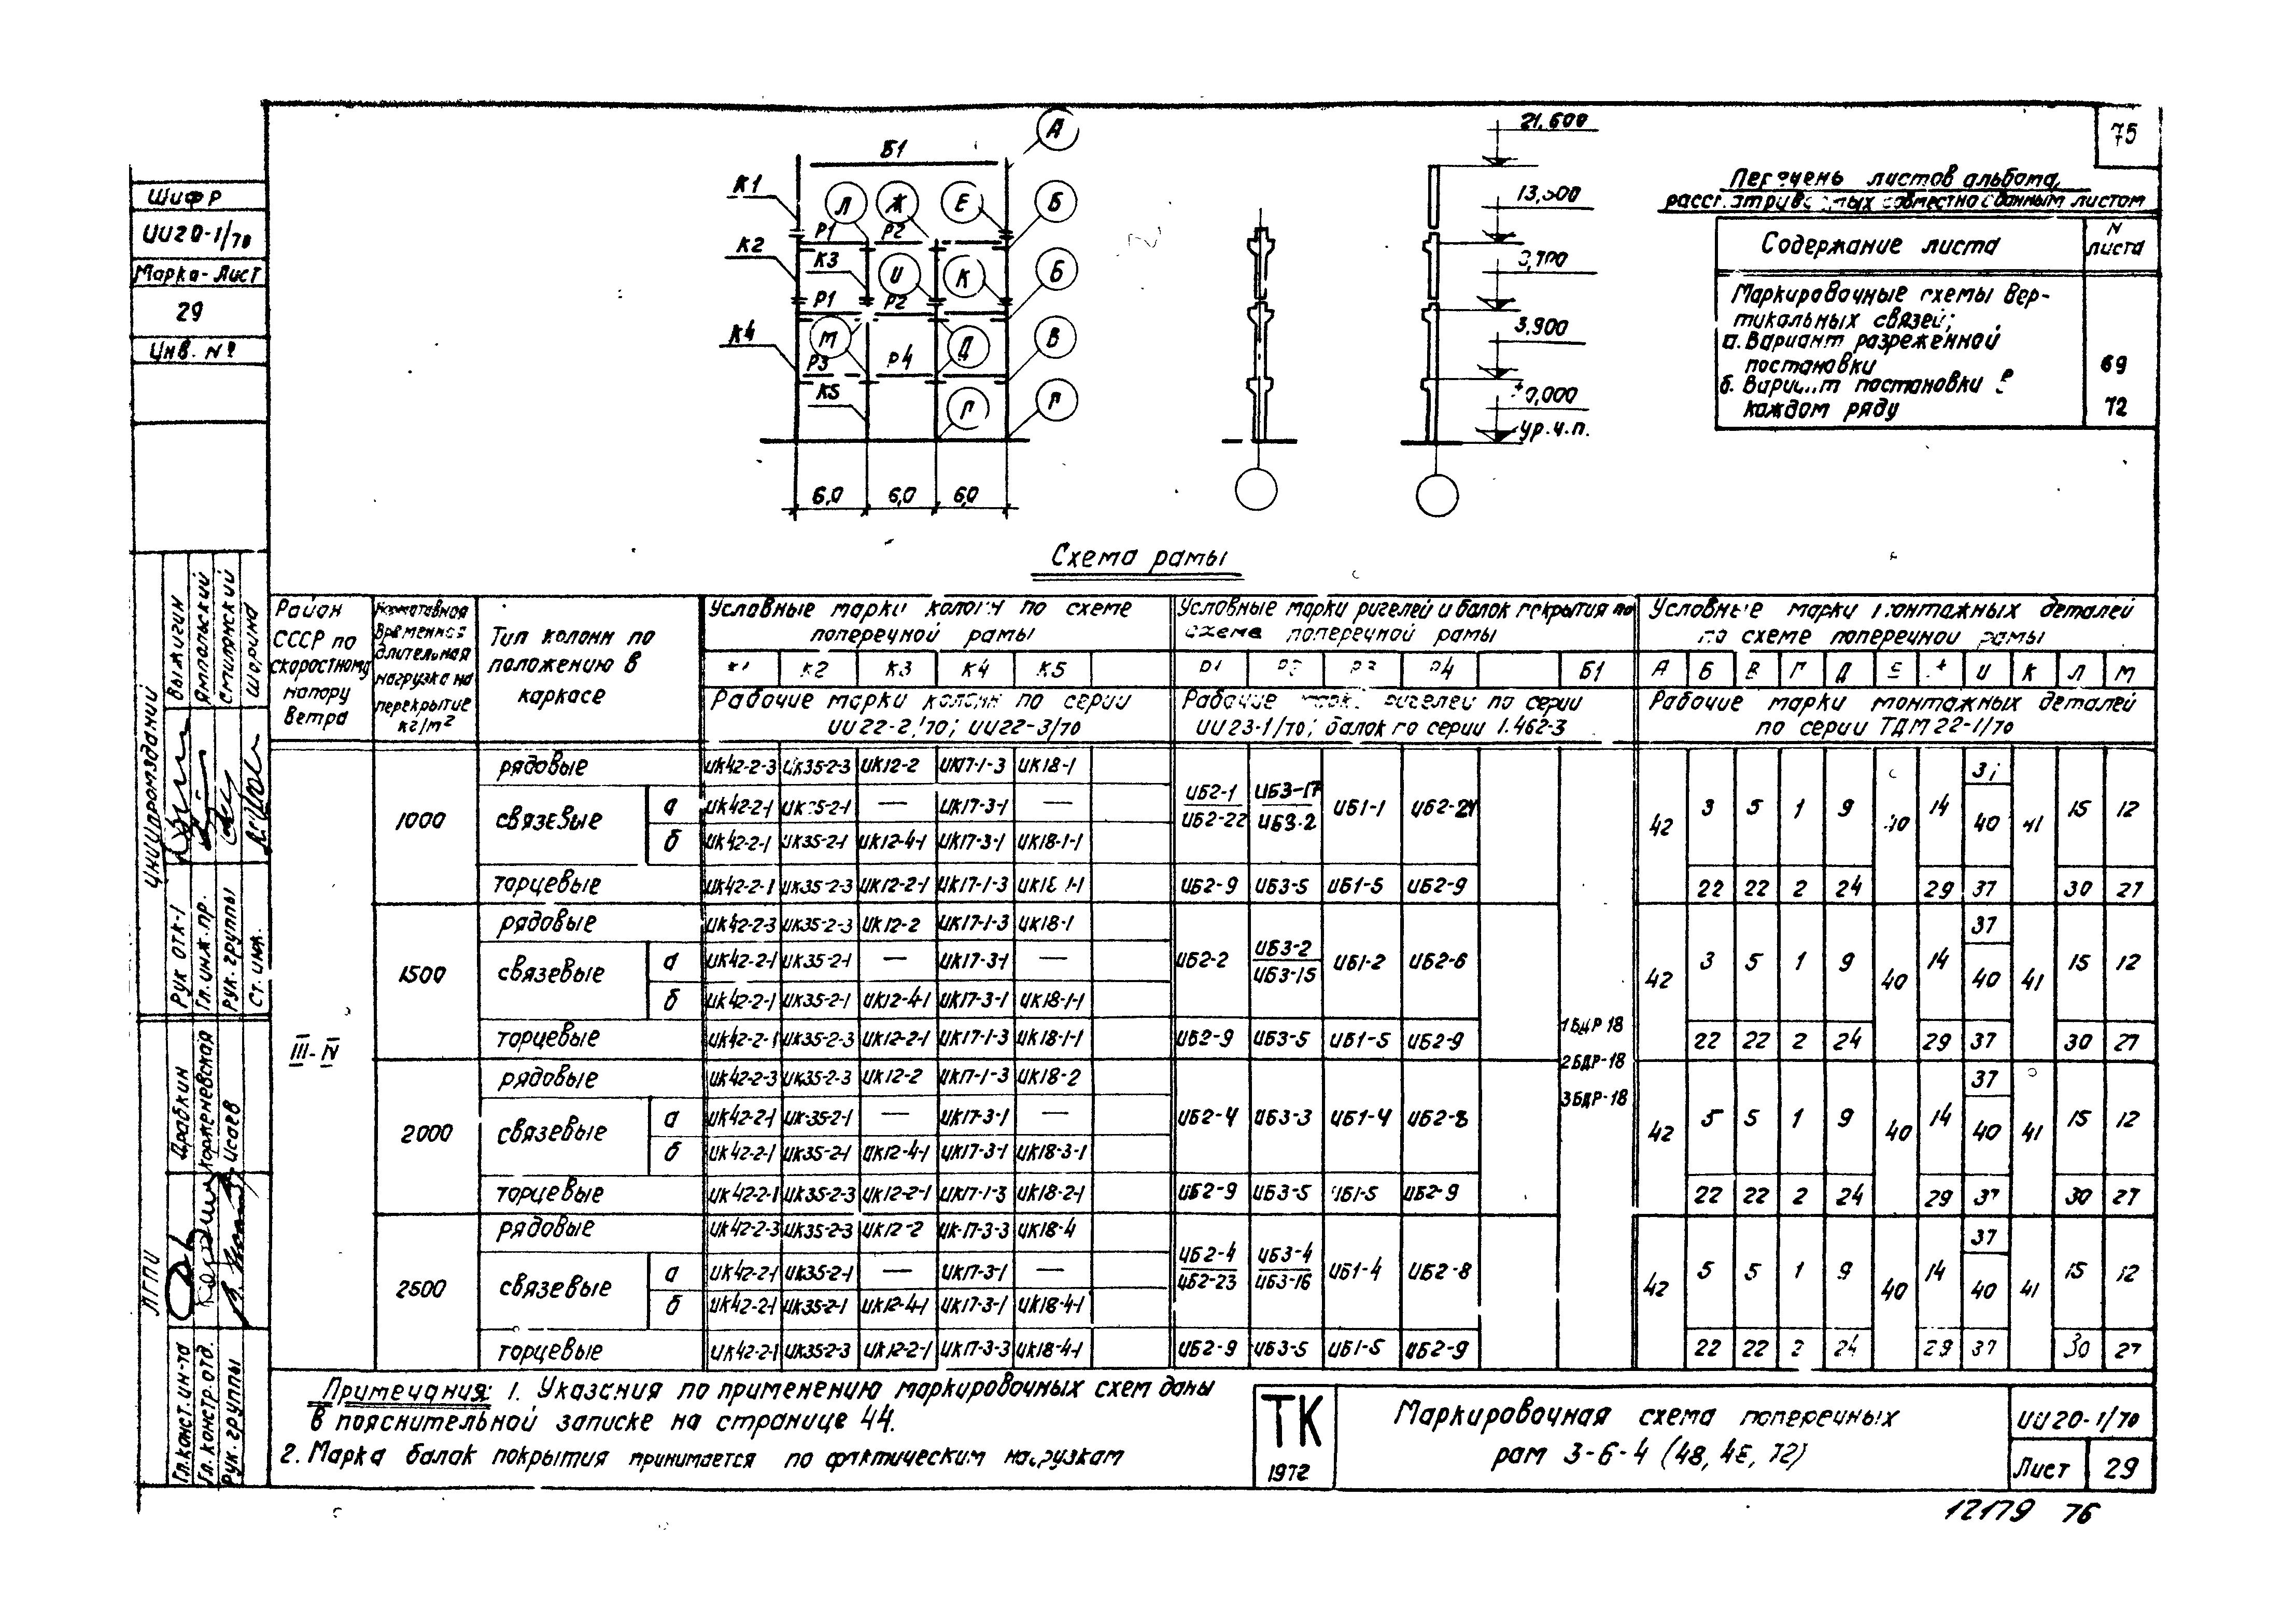 75
Шифр
ИИ20-1/70
Марка-Лист
29
Инв. №
ЦНИИПРОМЗДАНИЙ
Рук ОТК-1
Выжигин
Гл.инж.пр.
Ямпольский
Рук.группы
Смилянский
Ст.инж.
Шорина
ЛГПИ
Гл.конст.ин-та
Драбкин
Гл.констр.отд.
Коржневская
Рук.группы
Исаев
Б1
А
К1
Л
Ж
Е
Б
Р1
Р2
К2
К3
И
К
Б
Р1
Р2
К4
М
Д
В
Р3
Р4
К5
Г
Г
6,0
6,0
6,0
21,600
3,900
0,000
ур.ч.п.
Перечень листов альбома,
рассматриваемых совместно с данным листом
Содержание листа
N листа
Маркировочные схемы Вер-
тикальных связей;
а. Вариант разреженной
постановки
69
б. Вариант постановки в
каждом ряду
72
Схема рамы
Район СССР по скоростному напору Ветра
Нормативная Временная длительная нагрузка на перекрытие кг/м²
Тип колонн по положению в каркасе
Условные марки колонн по схеме поперечной рамы
К1 К2 К3 К4 К5
Рабочие марки колонн по серии ИИ22-2/70; ИИ22-3/70
Условные марки ригелей и балок покрытия по схеме поперечной рамы
Р1 Р2 Р3 Р4 Б1
Рабочие марки ригелей по серии ИИ23-1/70; балок по серии 1.462-3
Условные марки монтажных деталей по схеме поперечной рамы
А Б В Г Д Е Ж И К Л М
Рабочие марки монтажных деталей по серии ТДМ22-1/70
III-IV
1БДР-18
2БДР-18
3БДР-18
1000
рядовые ИК42-2-3 ИК35-2-3 ИК12-2 ИК17-1-3 ИК18-1
связевые
а ИК42-2-1 ИК35-2-1 — ИК17-3-1 —
б ИК42-2-1 ИК35-2-1 ИК12-4-1 ИК17-3-1 ИК18-1-1
ИБ2-1 ИБ3-17
ИБ2-22 ИБ3-2
ИБ1-1 ИБ2-21
42 3 5 1 9 40 14 40 41 15 12
торцевые ИК42-2-1 ИК35-2-3 ИК12-2-1 ИК17-1-3 ИК18-1-1 ИБ2-9 ИБ3-5 ИБ1-5 ИБ2-9 22 22 2 24 29 37 30 27
1500
рядовые ИК42-2-3 ИК35-2-3 ИК12-2 ИК17-1-3 ИК18-1 37
связевые
а ИК42-2-1 ИК35-2-1 — ИК17-3-1 —
б ИК42-2-1 ИК35-2-1 ИК12-4-1 ИК17-3-1 ИК18-1-1
ИБ2-2
ИБ3-2
ИБ3-15
ИБ1-2 ИБ2-6
42 3 5 1 9 40 14 40 41 15 12
торцевые ИК42-2-1 ИК35-2-3 ИК12-2-1 ИК17-1-3 ИК18-1-1 ИБ2-9 ИБ3-5 ИБ1-5 ИБ2-9 22 22 2 24 29 37 30 27
2000
рядовые ИК42-2-3 ИК35-2-3 ИК12-2 ИК17-1-3 ИК18-2 37
связевые
а ИК42-2-1 ИК35-2-1 — ИК17-3-1 —
б ИК42-2-1 ИК35-2-1 ИК12-4-1 ИК17-3-1 ИК18-3-1
ИБ2-4 ИБ3-3 ИБ1-4 ИБ2-8
42 5 5 1 9 40 14 40 41 15 12
торцевые ИК42-2-1 ИК35-2-3 ИК12-2-1 ИК17-1-3 ИК18-2-1 ИБ2-9 ИБ3-5 ИБ1-5 ИБ2-9 22 22 2 24 29 37 30 27
2500
рядовые ИК42-2-3 ИК35-2-3 ИК12-2 ИК-17-3-3 ИК18-4 37
связевые
а ИК42-2-1 ИК35-2-1 — ИК17-3-1 —
б ИК42-2-1 ИК35-2-1 ИК12-4-1 ИК17-3-1 ИК18-4-1
ИБ2-4 ИБ3-4
ИБ2-23 ИБ3-16
ИБ1-4 ИБ2-8
42 5 5 1 9 40 14 40 41 15 12
торцевые ИК42-2-1 ИК35-2-3 ИК12-2-1 ИК17-3-3 ИК18-4-1 ИБ2-9 ИБ3-5 ИБ1-5 ИБ2-9 22 22 2 24 29 37 30 27
Примечания: 1. Указания по применению маркировочных схем даны
в пояснительной записке на странице 44.
2. Марка балок покрытия принимается по фактическим нагрузкам
ТК
1972
Маркировочная схема поперечных
рам 3-6-4 (48, 72)
ИИ20-1/70
Лист 29
12179 76